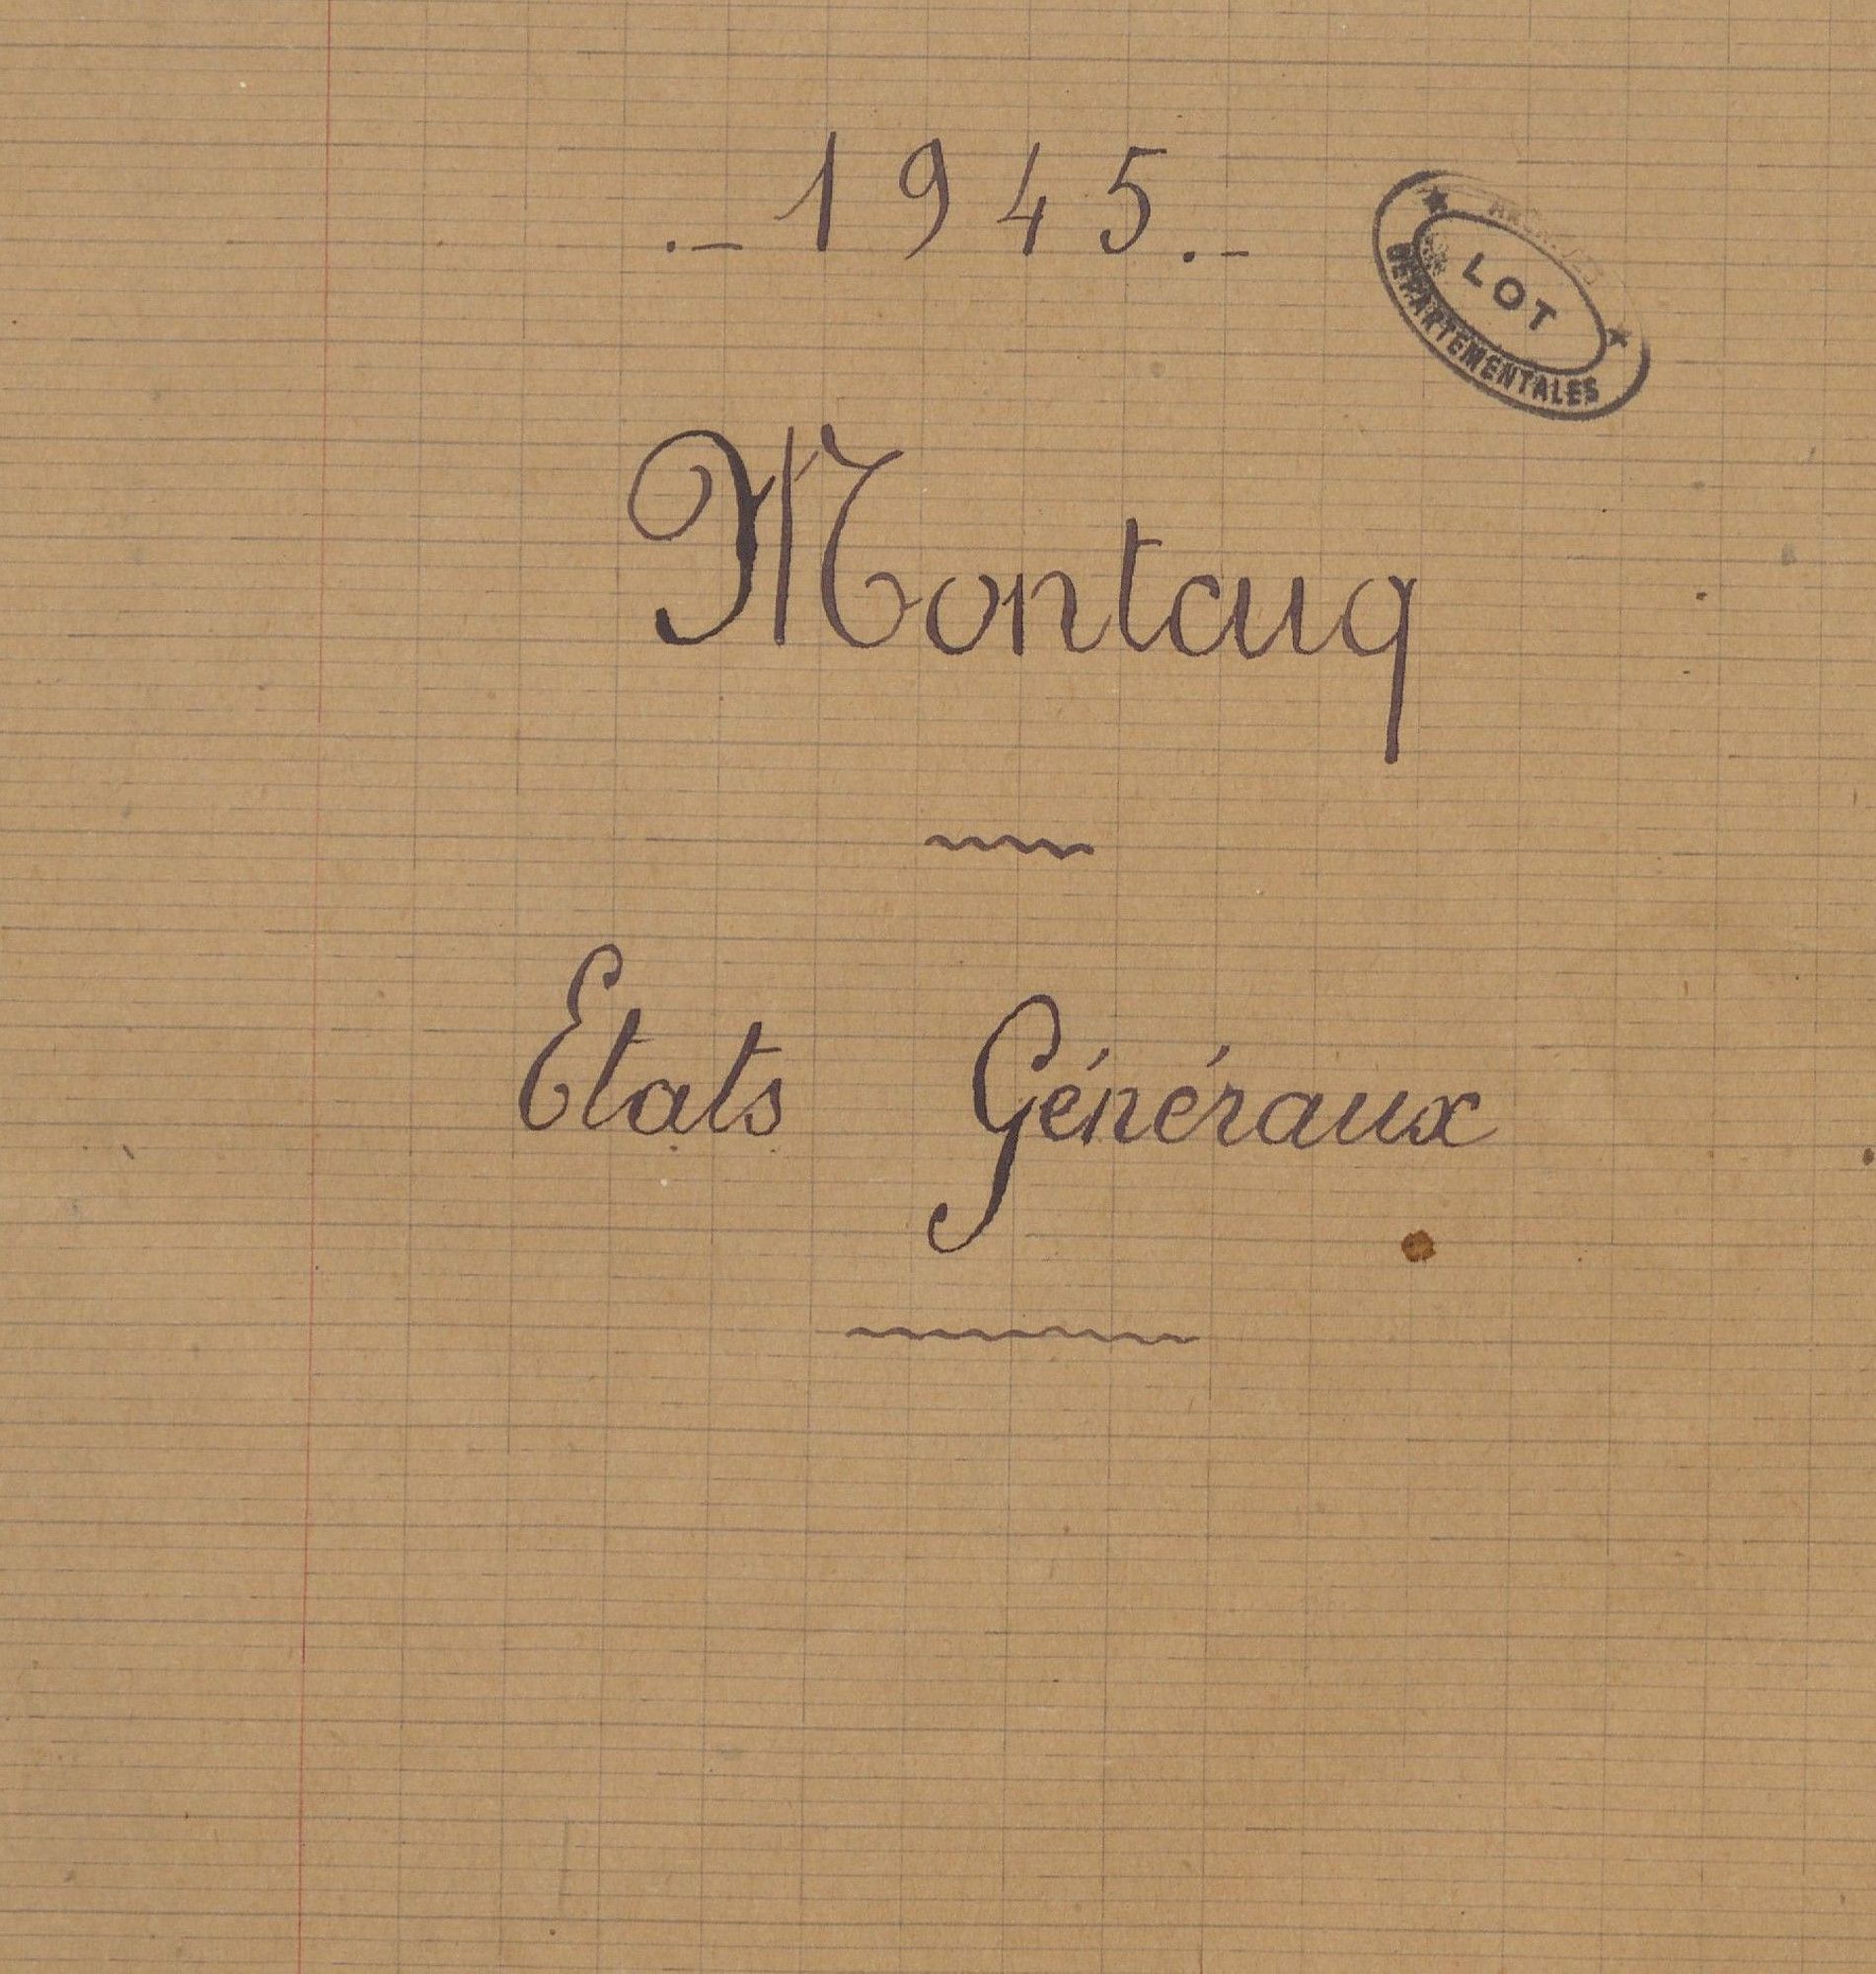 .– 1945.–
ARCHIVES
LOT
DÉPARTEMENTALES
Montcuq
Etats Généraux